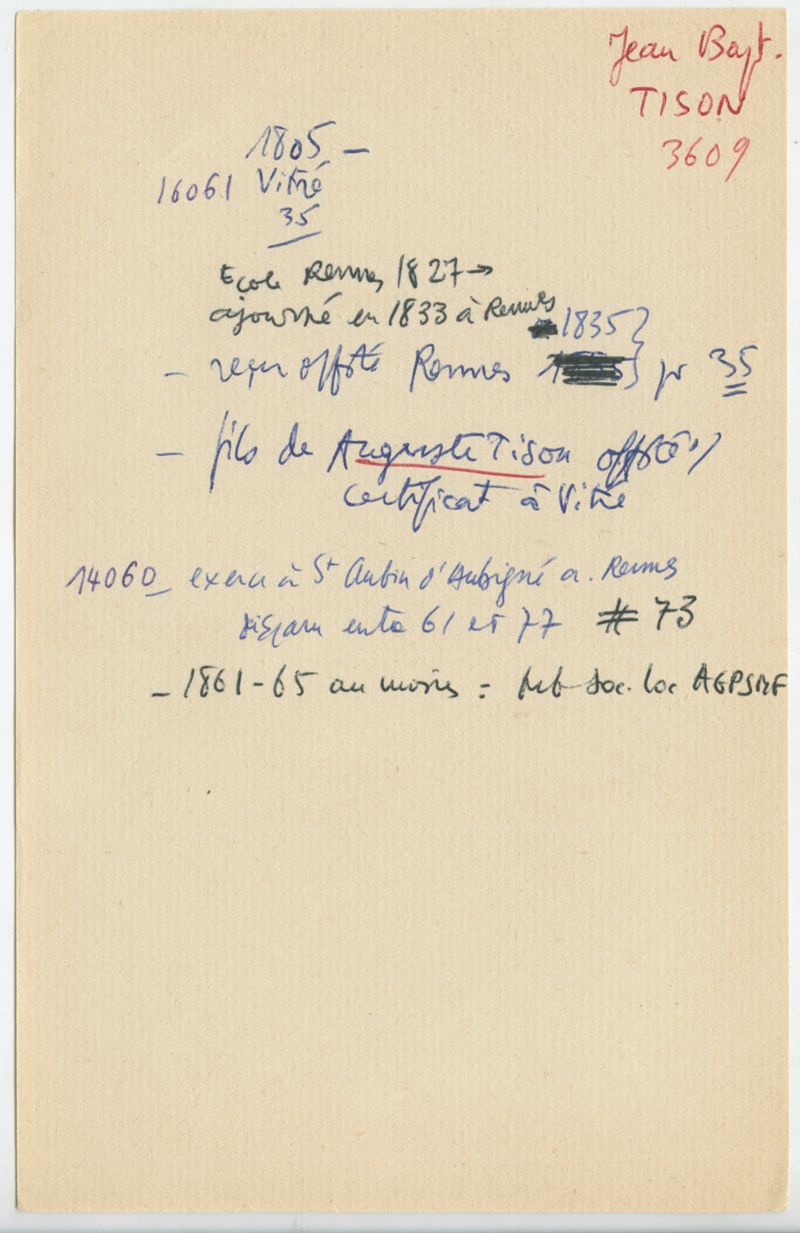 Jean Bapt.
TISON
3609
1805 —
16061 Vitré
35
Ecole Rennes 1827 →
ajourné en 1833 à Rennes
1835 }
— reçu offté Rennes } pr 35
— fils de Auguste Tison offté
certificat à Vitré
14060 — exerce à St Aubin d'Aubigné a. Rennes
disparu entre 61 et 77 # 73
— 1861-65 au moins = Mb soc. loc AGPSMF